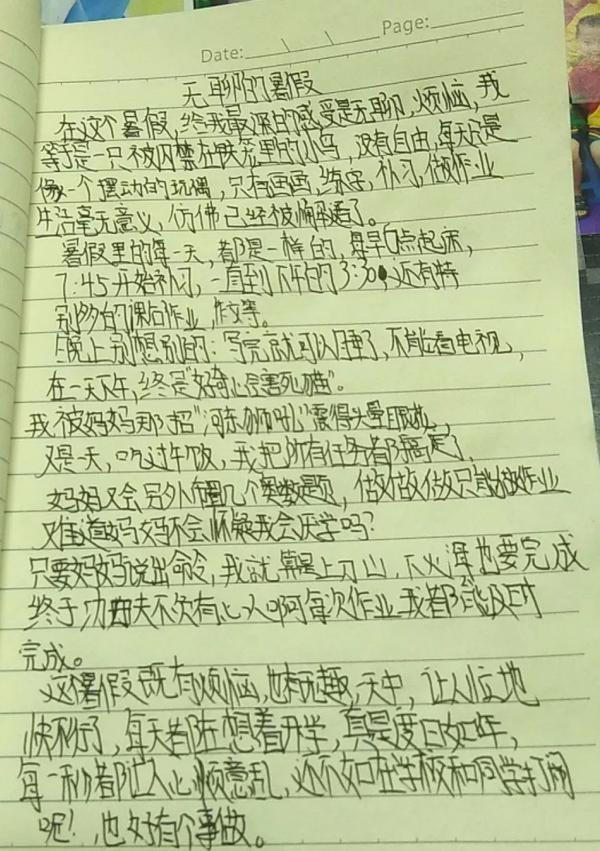 Date: Page:
无聊的暑假
在这个暑假,给我最深的感受是无聊,烦恼,我
等于是一只被囚禁在铁笼里的小鸟,没有自由,每天只是
像一个摆动的玩偶,只有画画,练字,补习,做作业
生活毫无意义,仿佛已经被隔绝了。
暑假里的每一天,都是一样的,每早6点起床,
7:45开始补习,一直到下午的3:30,还有特
别多的课后作业,作文等。
晚上别想别的:写完就可以睡了,不能看电视,
在一天下午,终是“好奇心害死猫”。
我被妈妈那招“河东狮吼”震得头晕目眩
又是一天,吃过午饭,我把所有任务都搞定了,
妈妈又会另外布置几个奥数题,做做做只能做作业
难道妈妈不会怀疑我会厌学吗?
只要妈妈说出命令,我就算是上刀山,下火海也要完成
终于功夫不负有心人啊每次作业我都能及时
完成。
这暑假既有烦恼,也有无趣,天中,让人位地
快不行了,每天都在想着开学,真是度日如年,
每一秒都让人心烦意乱,还不如在学校和同学打闹
呢!也好有个事做。